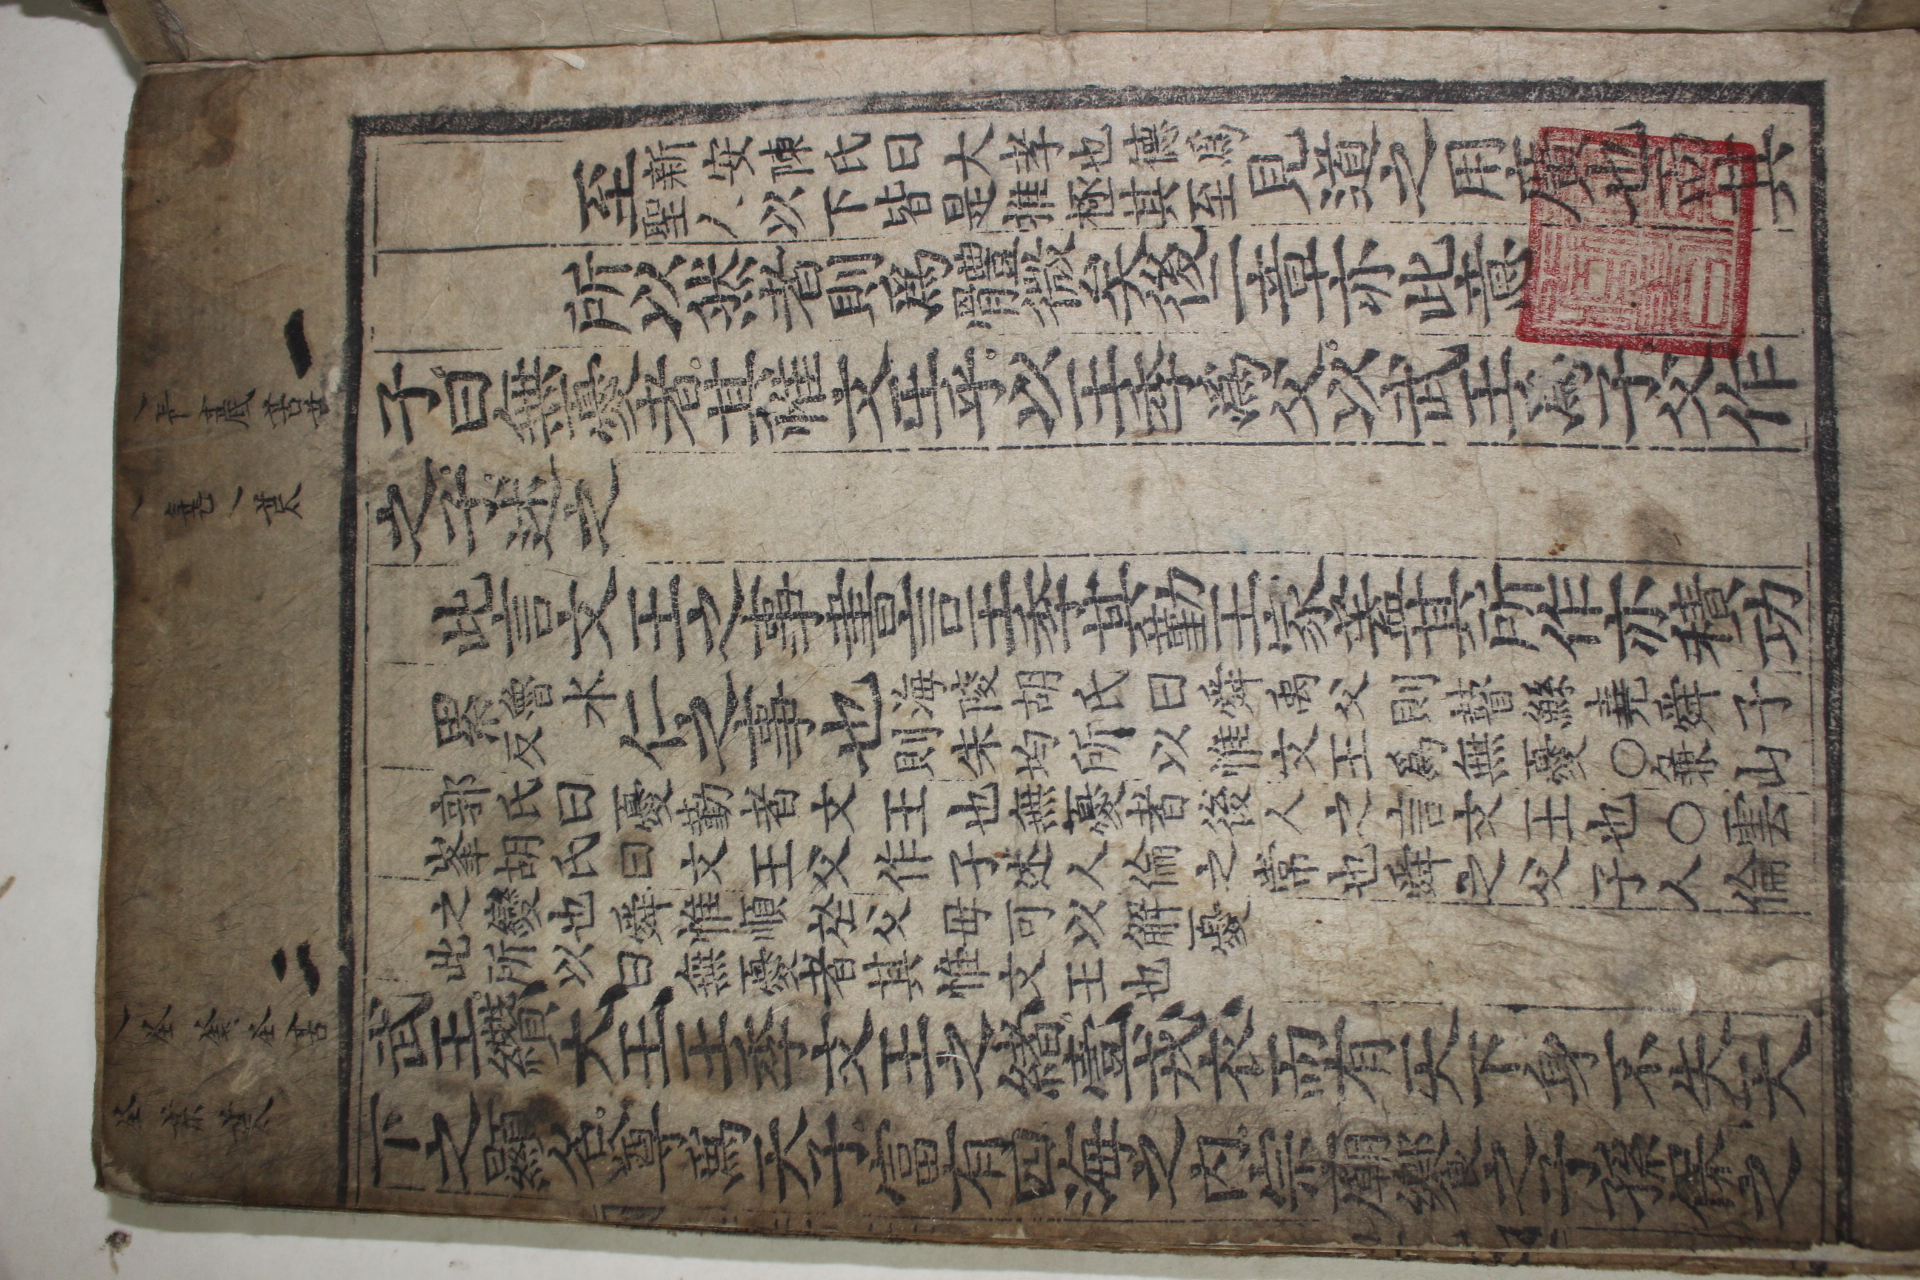 至新安陳氏曰大孝也德爲
聖人以下皆是推極其至見道之用廣也而其
所以然者則爲體微矣後二章亦此意
子曰無憂者其惟文王乎以王季爲父以武王爲子父作
之子述之
此言文王之事書言王季其勤王家蓋其所作亦積功
累魯水反仁之事也海陵胡氏曰舜禹父則瞽鯀堯舜子
則朱均所以惟文王爲無憂○兼山
郭氏曰憂勤者文王也無憂者後人之言文王也○雲
峯胡氏曰文王父作子述人倫之常也舜之父子人倫
之變也舜惟順於父母可以解憂
此所以曰無憂者其惟文王也
武王纘大王王季文王之緒壹戎衣而有天下身不失天
下之顯名尊爲天子富有四海之內宗廟饗之子孫保之